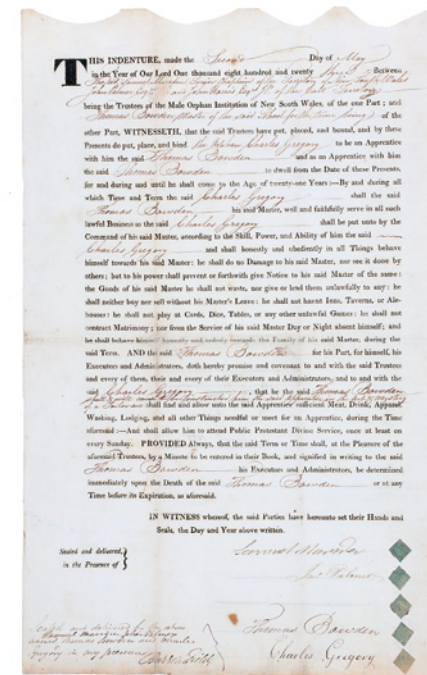 THIS INDENTURE, made the Second Day of May
in the Year of Our Lord One thousand eight hundred and twenty Between
being the Trustees of the Male Orphan Institution of New South Wales, of the one Part; and
Thomas Bowden Master of the said School for the time being of the
other Part, WITNESSETH, that the said Trustees have put, placed, and bound, and by these
Presents do put, place, and bind Charles Gregory to be an Apprentice
with him the said Thomas Bowden and as an Apprentice with him
the said Thomas Bowden to dwell from the Date of these Presents,
for and during and until he shall come to the Age of twenty-one Years:—By and during all
which Time and Term the said Charles Gregory shall the said
Thomas Bowden his said Master, well and faithfully serve in all such
lawful Business as the said Charles Gregory shall be put unto by the
Command of his said Master, according to the Skill, Power, and Ability of him the said
Charles Gregory and shall honestly and obediently in all Things behave
himself towards his said Master: he shall do no Damage to his said Master, nor see it done by
others; but to his power shall prevent or forthwith give Notice to his said Master of the same:
the Goods of his said Master he shall not waste, nor give or lend them unlawfully to any: he
shall neither buy nor sell without his Master's Leave: he shall not haunt Inns, Taverns, or Ale-
houses: he shall not play at Cards, Dice, Tables, or any other unlawful Games: he shall not
contract Matrimony; nor from the Service of his said Master Day or Night absent himself; and
he shall behave himself honestly and orderly towards the Family of his said Master, during the
said Term. AND the said Thomas Bowden for his Part, for himself, his
Executors and Administrators, doth hereby promise and covenant to and with the said Trustees
and every of them, their and every of their Executors and Administrators, and to and with the
said Charles Gregory that he the said Thomas Bowden
shall find and allow unto the said Apprentice sufficient Meat, Drink, Apparel
Washing, Lodging, and all other Things needful or meet for an Apprentice, during the Time
aforesaid:—And shall allow him to attend Public Protestant Divine Service, once at least on
every Sunday. PROVIDED Always, that the said Term or Time shall, at the Pleasure of the
aforesaid Trustees, by a Minute to be entered in their Book, and signified in writing to the said
Thomas Bowden his Executors and Administrators, be determined
immediately upon the Death of the said Thomas Bowden or at any
Time before its Expiration, as aforesaid.
IN WITNESS whereof, the said Parties have hereunto set their Hands and
Seals, the Day and Year above written.
Sealed and delivered,
in the Presence of
Samuel Marsden
Thomas Bowden
Charles Gregory